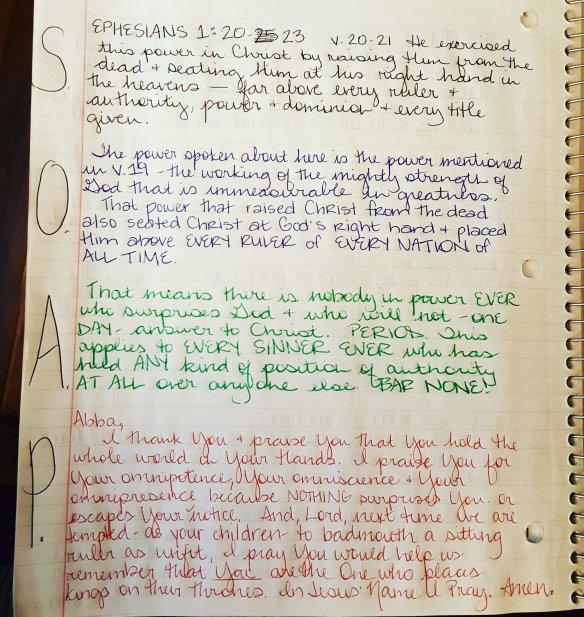 S.
EPHESIANS 1:20-25 23 v. 20-21 He exercised
this power in Christ by raising Him from the
dead + seating Him at his right hand in
the heavens — far above every ruler +
authority, power + dominion + every title
given.
O.
The power spoken about here is the power mentioned
in v.19 - the working of the mighty strength of
God that is immeasurable in greatness.
That power that raised Christ from the dead
also seated Christ at God's right hand + placed
Him above EVERY RULER of EVERY NATION of
ALL TIME.
A.
That means there is nobody in power EVER
who surprises God + who will not - one
DAY - answer to Christ. PERIOD. This
applies to EVERY SINNER EVER who has
held ANY kind of position of authority
AT ALL over anyone else. BAR NONE!
P.
Abba,
I thank You + praise You that You hold the
whole world in Your Hands. I praise You for
Your omnipotence, Your omniscience + Your
omnipresence because NOTHING surprises You or
escapes Your notice. And, Lord, next time we are
tempted - as your children - to badmouth a sitting
ruler as unfit, I pray You would help us
remember that You are the One who places
kings on their thrones. In Jesus' Name I Pray. Amen.